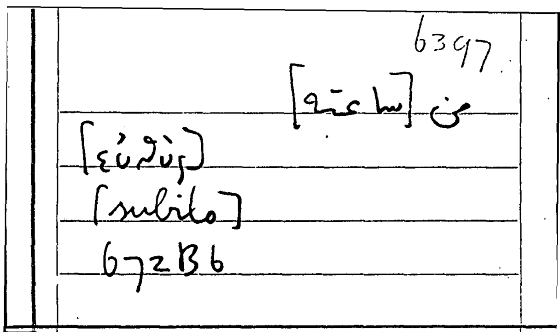 6397
من [ساعته]
[εὐθὺς]
[subito]
672B6